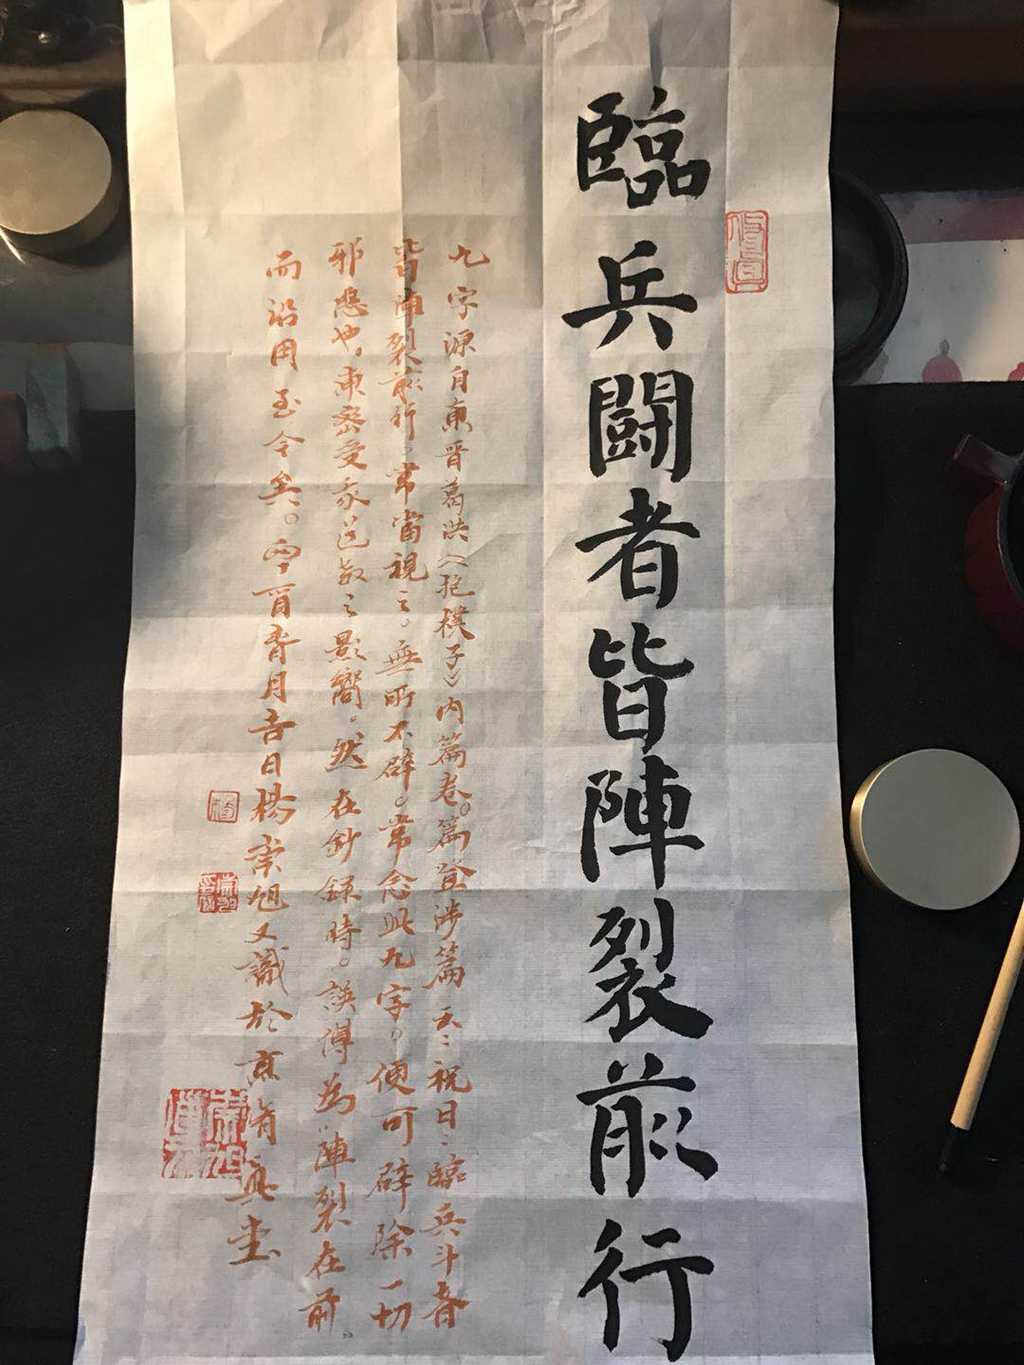 臨兵鬭者皆陣裂前行
九字源自東晋葛洪《抱樸子》内篇卷。篇登涉篇云：祝曰：臨兵斗者
皆陣裂前行。常當視之。無所不辟。常念此九字，便可辟除一切
邪惡也。東密受家道教之影響。然在鈔録時。誤傳為“陣裂在前。
而沿用至今矣。月吉日楊崇旭又識於京